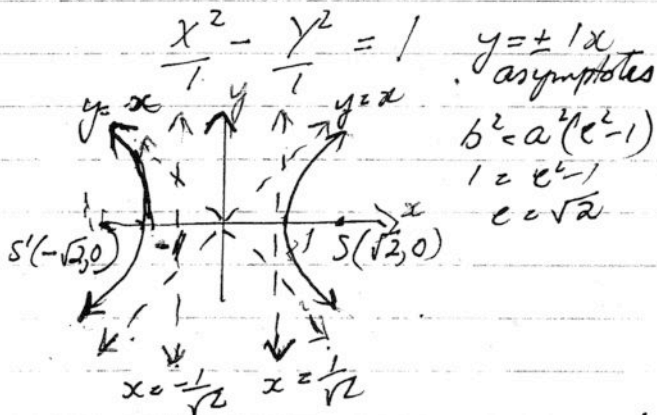 X²/1 - Y²/1 = 1
y = ± 1x
asymptotes
b² = a²(e²-1)
1 = e²-1
e = √2
y=-x
y
y=x
x
S'(-√2,0)
-1
1
S(√2,0)
x = -1/√2
x = 1/√2